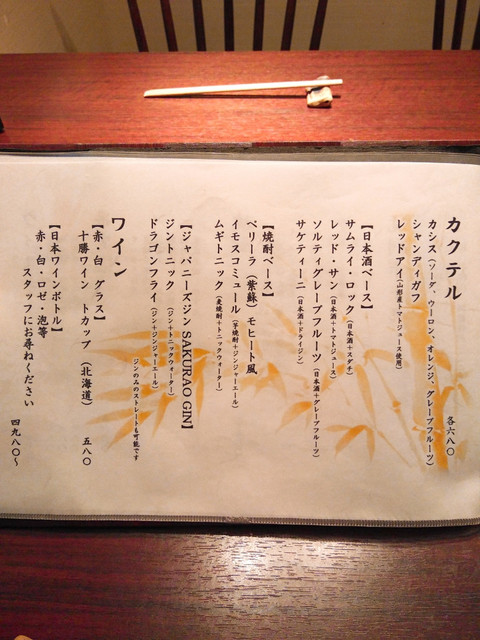 カクテル
各六八〇
カシス(ソーダ、ウーロン、オレンジ、グレープフルーツ)
シャンディガフ
レッドアイ(山形産トマトジュース使用)
【日本酒ベース】
サムライ・ロック(日本酒+スダチ)
レッド・サン(日本酒+トマトジュース)
ソルティグレープフルーツ(日本酒+グレープフルーツ)
サケティーニ(日本酒+ドライジン)
【焼酎ベース】
ペリーラ(紫蘇)モヒート風
イモスコミュール(芋焼酎+ジンジャーエール)
ムギトニック(麦焼酎+トニックウォーター)
【ジャパニーズジン SAKURAO GIN】
ジントニック(ジン+トニックウォーター)
ドラゴンフライ(ジン+ジンジャーエール)
ジンのみのストレートも可能です
ワイン
【赤・白 グラス】
十勝ワイン トカップ (北海道) 五八〇
【日本ワインボトル】
赤・白・ロゼ・泡等
スタッフにお尋ねください
四九八〇~